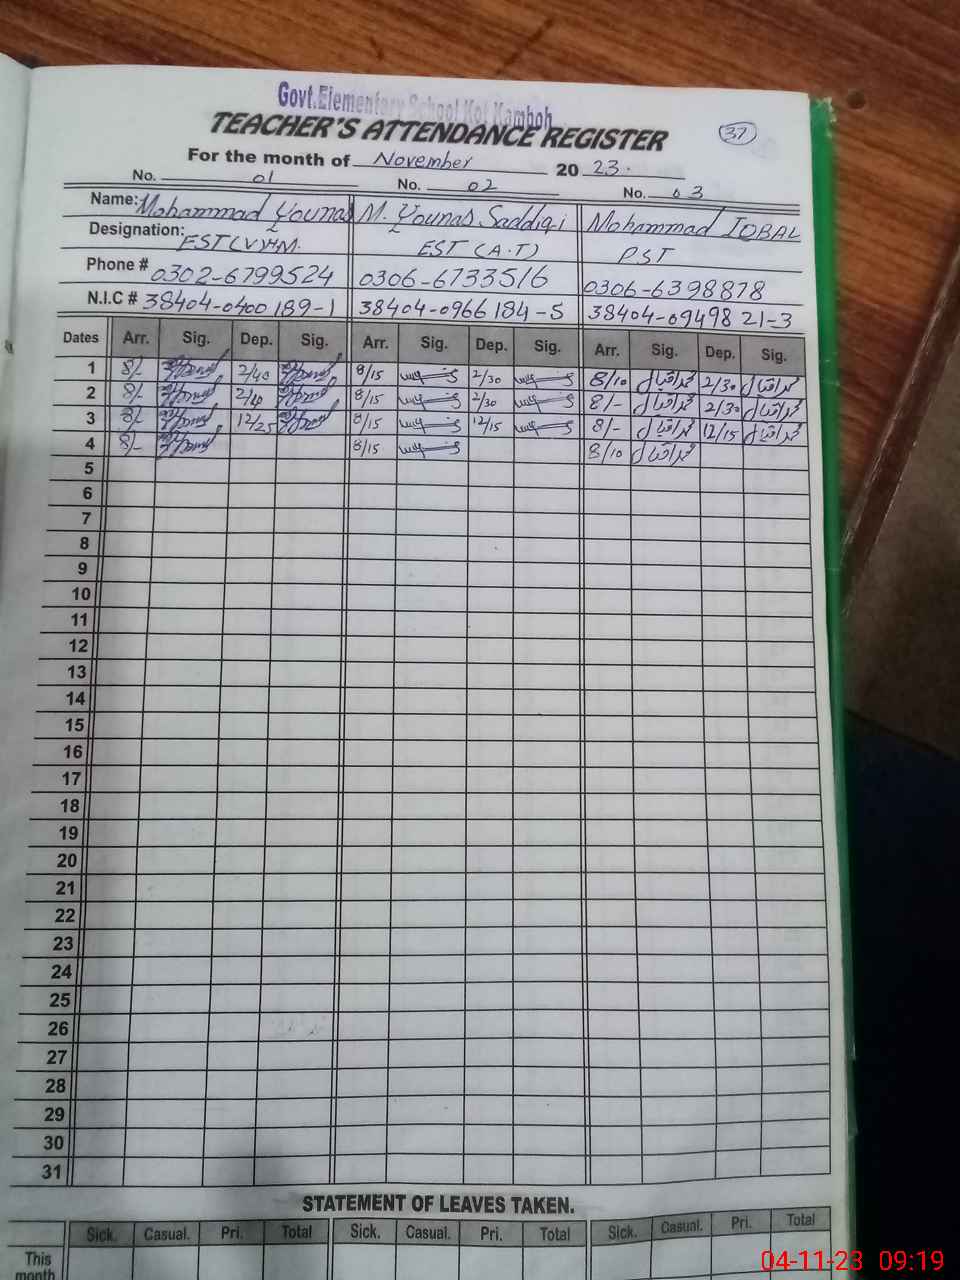 Govt.Elementary School Kot Kamboh
TEACHER'S ATTENDANCE REGISTER
37
For the month of November 2023.
No. 01 No. 02 No. 03
Name: Mohammad Younas M. Younas Saddiqi Mohammad IQBAL
Designation: EST(V)HM. EST (A.T) PST
Phone # 0302-6799524 0306-6733516 0306-6398878
N.I.C # 38404-0400189-1 38404-0966184-5 38404-0949821-3
Dates Arr. Sig. Dep. Sig. Arr. Sig. Dep. Sig. Arr. Sig. Dep. Sig.
1 8/- 2/40 8/15 2/30 8/10 محمد اقبال 2/30 محمد اقبال
2 8/- 2/40 8/15 2/30 8/- محمد اقبال 2/30 محمد اقبال
3 8/- 12/25 8/15 12/15 8/- محمد اقبال 12/15 محمد اقبال
4 8/- 8/15 8/10 محمد اقبال
5
6
7
8
9
10
11
12
13
14
15
16
17
18
19
20
21
22
23
24
25
26
27
28
29
30
31
STATEMENT OF LEAVES TAKEN.
Sick. Casual. Pri. Total Sick. Casual. Pri. Total Sick. Casual. Pri. Total
This
month
04-11-23 09:19